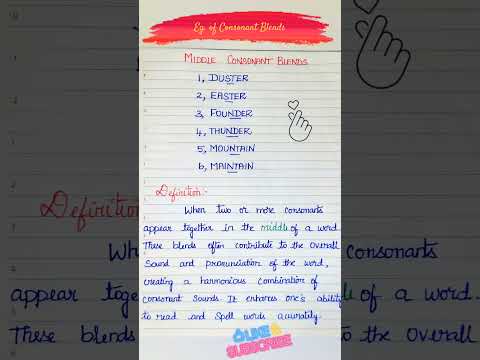 Eg. of Consonant Blends
MIDDLE CONSONANT BLENDS
1, DUSTER
2, EASTER
3, FOUNDER
4, THUNDER
5, MOUNTAIN
6, MAINTAIN
Definition:-
When two or more consonants
appear together in the middle of a word.
These blends often contribute to the overall
sound and pronunciation of the word,
creating a harmonious combination of
consonant sounds. It enhances one's ability
to read and spell words accurately.
LIKE &
SUBSCRIBE